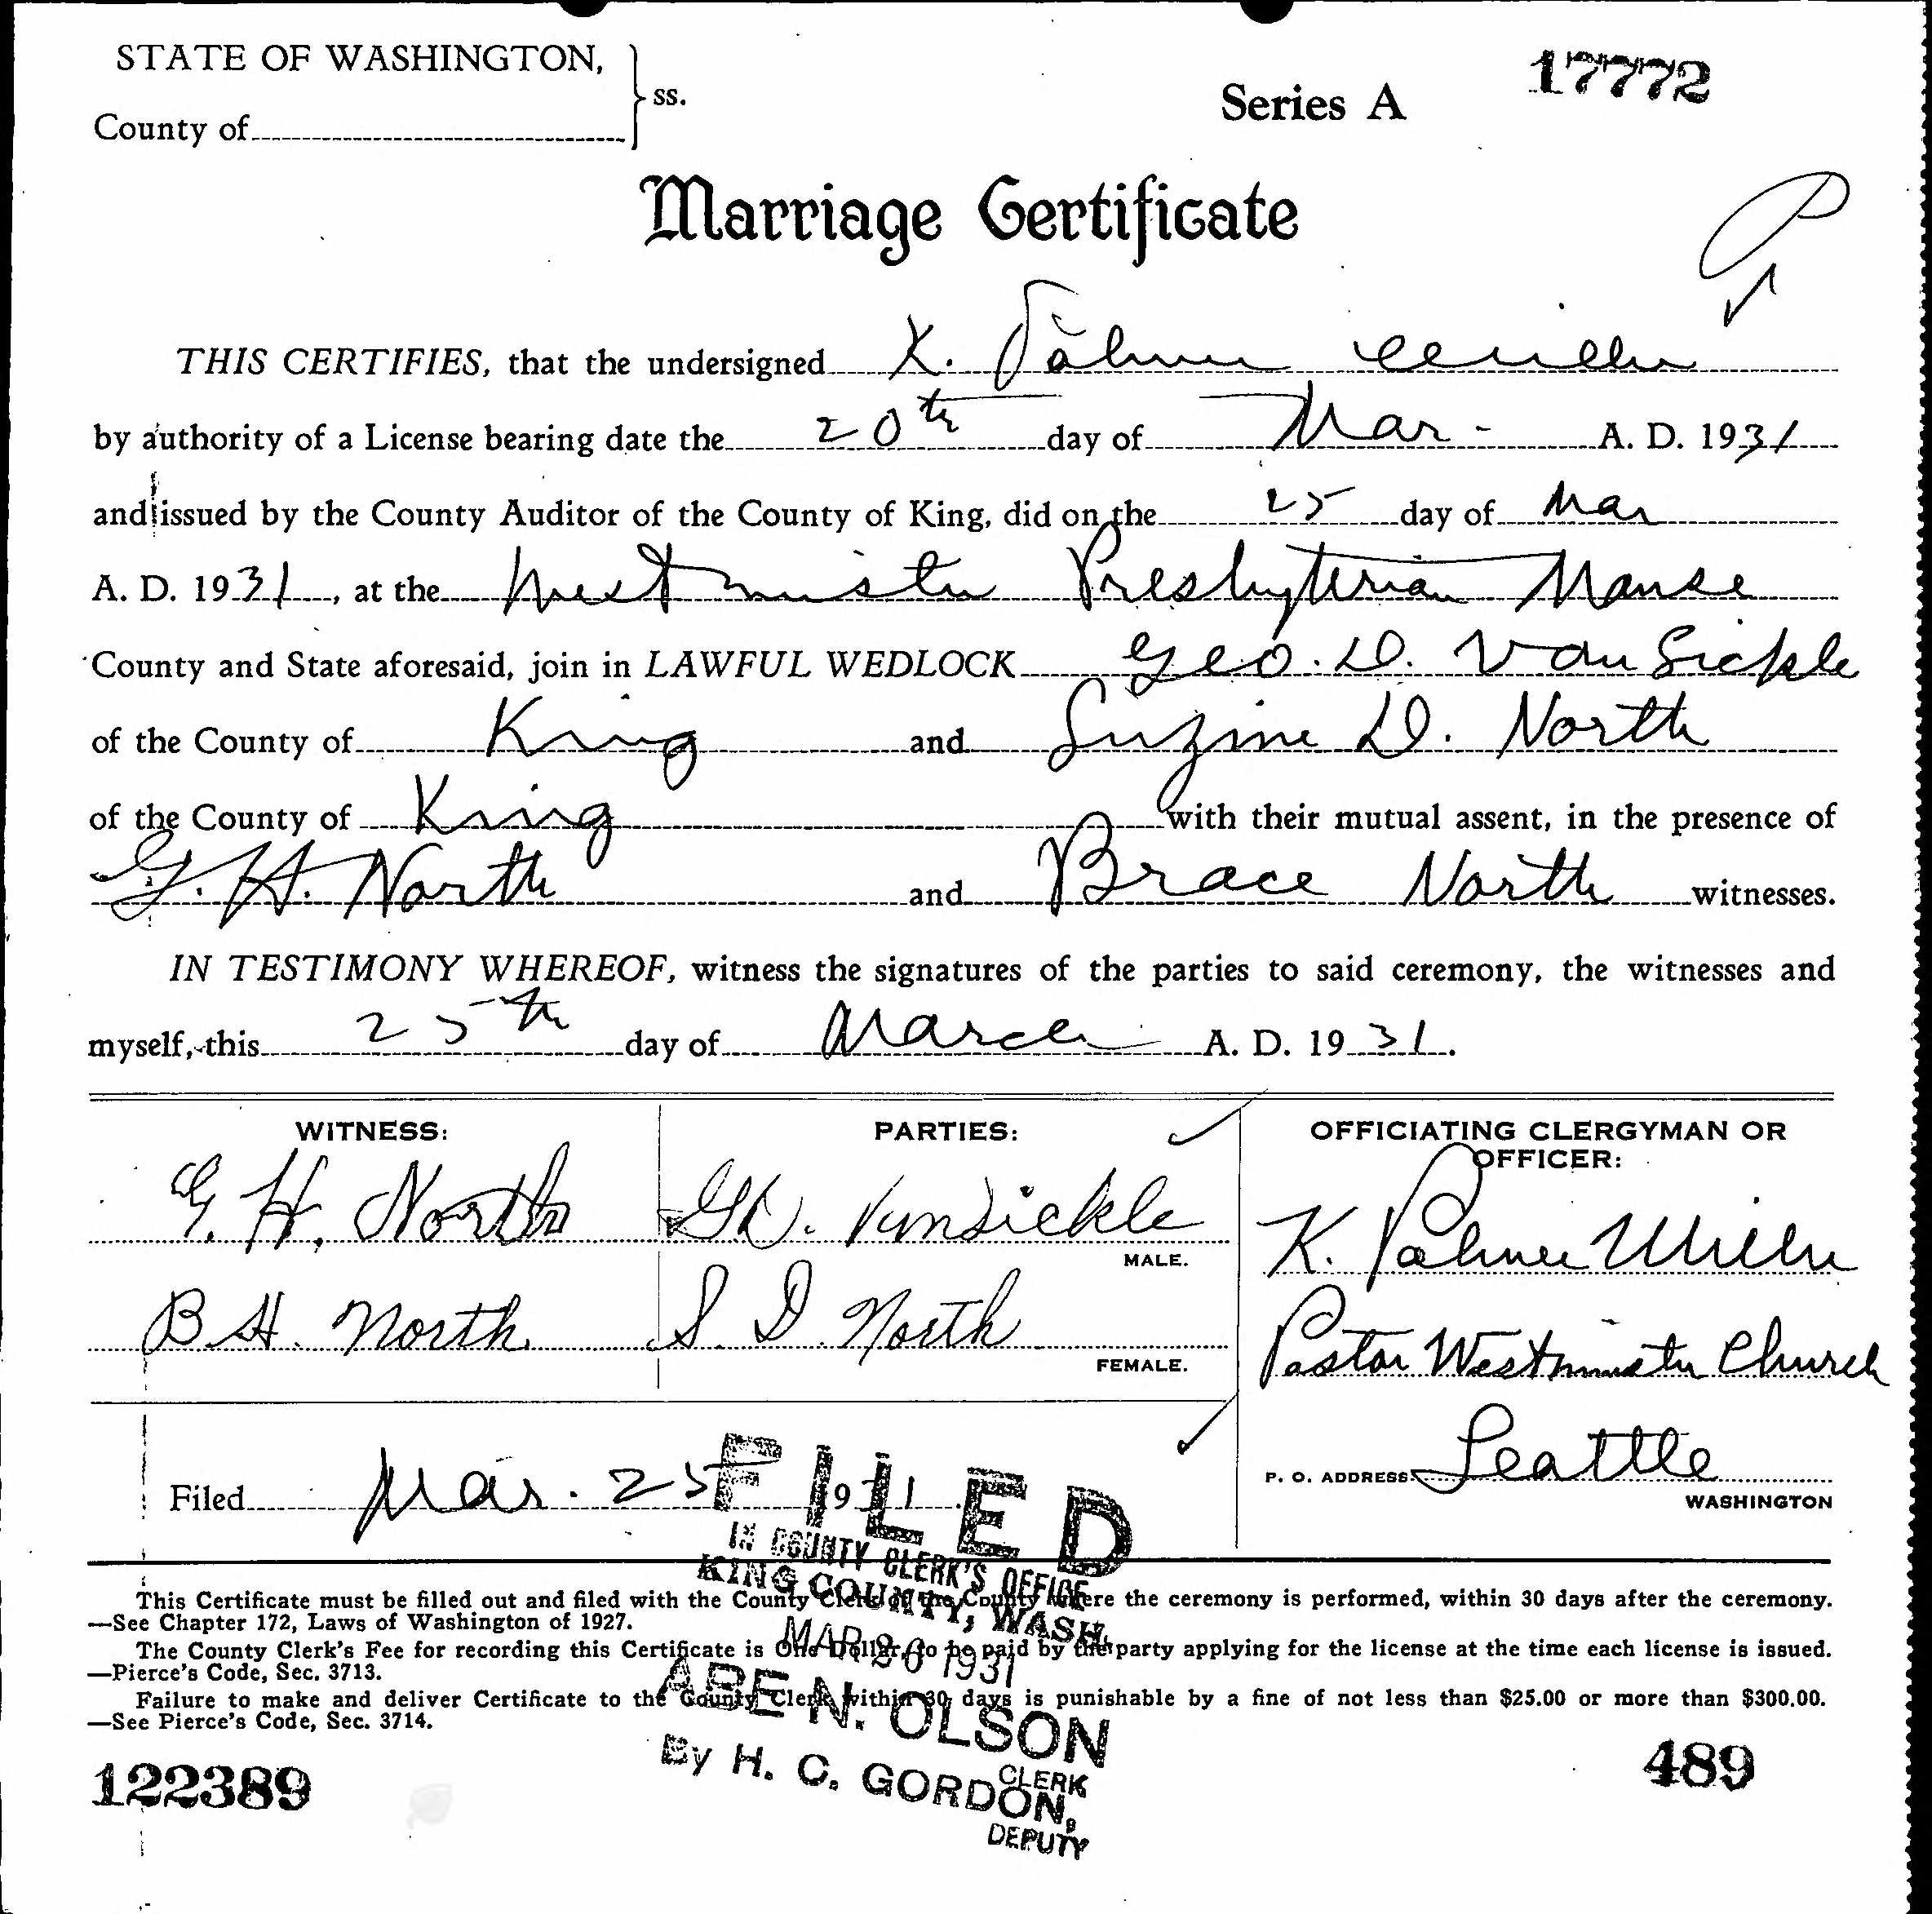 STATE OF WASHINGTON,
ss.
County of
Series A
17772
Marriage Certificate
THIS CERTIFIES, that the undersigned K. Palmer Miller
by authority of a License bearing date the 20th day of Mar - A. D. 1931
and issued by the County Auditor of the County of King, did on the 25 day of Mar
A. D. 1931, at the Westminster Presbyterian Manse
County and State aforesaid, join in LAWFUL WEDLOCK Geo. D. Van Sickle
of the County of King and Suzine D. North
of the County of King with their mutual assent, in the presence of
G. H. North and Brace North witnesses.
IN TESTIMONY WHEREOF, witness the signatures of the parties to said ceremony, the witnesses and
myself, this 25th day of March A. D. 1931.
WITNESS:
PARTIES:
OFFICIATING CLERGYMAN OR
OFFICER:
G. H. North
G.D. VanSickle
MALE.
K. Palmer Miller
B. H. North
S. D. North
FEMALE.
Pastor Westminster Church
P. O. ADDRESS: Seattle
WASHINGTON
Filed Mar. 25 1931
FILED
IN COUNTY CLERK'S OFFICE
KING COUNTY, WASH.
MAR 26 1931
ABE N. OLSON
CLERK
By H. C. GORDON,
DEPUTY
This Certificate must be filled out and filed with the County Clerk of the County where the ceremony is performed, within 30 days after the ceremony.
—See Chapter 172, Laws of Washington of 1927.
The County Clerk's Fee for recording this Certificate is One Dollar, to be paid by the party applying for the license at the time each license is issued.
—Pierce's Code, Sec. 3713.
Failure to make and deliver Certificate to the County Clerk within 30 days is punishable by a fine of not less than $25.00 or more than $300.00.
—See Pierce's Code, Sec. 3714.
122389
489